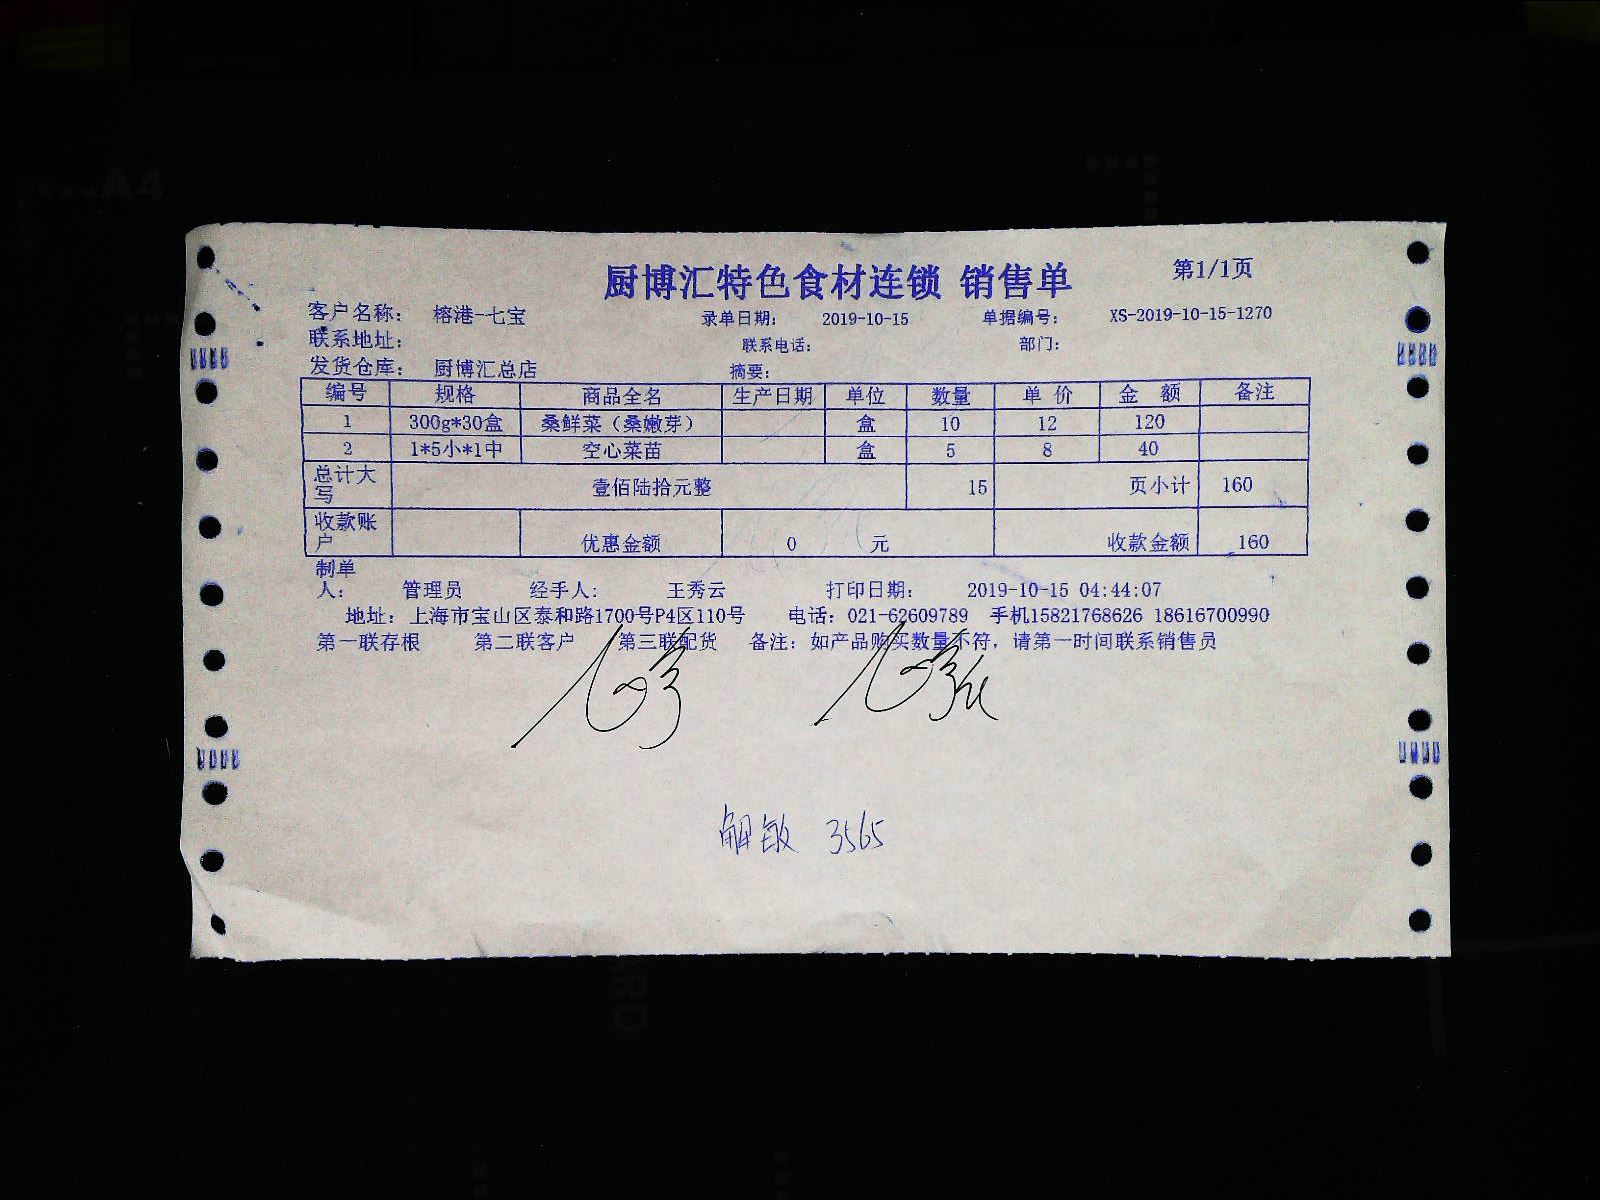 厨博汇特色食材连锁 销售单 第1/1页
客户名称： 榕港-七宝 录单日期： 2019-10-15 单据编号： XS-2019-10-15-1270
联系地址： 联系电话： 部门：
发货仓库： 厨博汇总店 摘要：
编号 规格 商品全名 生产日期 单位 数量 单 价 金 额 备注
1 300g*30盒 桑鲜菜（桑嫩芽） 盒 10 12 120
2 1*5小*1中 空心菜苗 盒 5 8 40
总计大写 壹佰陆拾元整 15 页小计 160
收款账户 优惠金额 0 元 收款金额 160
制单人： 管理员 经手人： 王秀云 打印日期： 2019-10-15 04:44:07
地址：上海市宝山区泰和路1700号P4区110号 电话：021-62609789 手机15821768626 18616700990
第一联存根 第二联客户 第三联配货 备注：如产品购买数量不符，请第一时间联系销售员
解敏 3565
A4